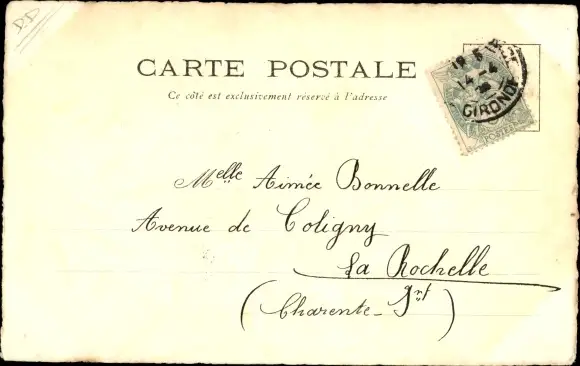 CARTE POSTALE
Ce côté est exclusivement réservé à l'adresse
14-4
GIRONDE
Melle Aimée Bonnelle
Avenue de Coligny
La Rochelle
(Charente-Inf)